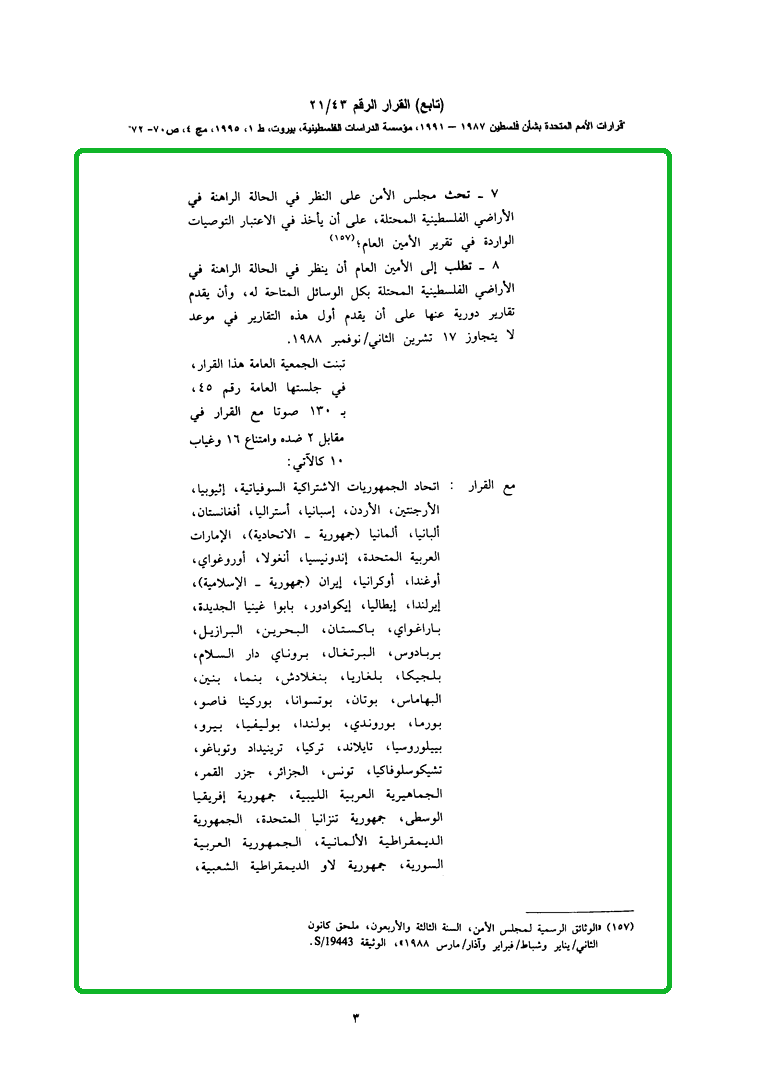 (تابع) القرار الرقم ٢١/٤٣
"قرارات الأمم المتحدة بشأن فلسطين ١٩٨٧ – ١٩٩١، مؤسسة الدراسات الفلسطينية، بيروت، ط ١، ١٩٩٥، مج ٤، ص ٧٠- ٧٢"
٧ ـ تحث مجلس الأمن على النظر في الحالة الراهنة في
الأراضي الفلسطينية المحتلة، على أن يأخذ في الاعتبار التوصيات
الواردة في تقرير الأمين العام؛(١٥٧)
٨ ـ تطلب إلى الأمين العام أن ينظر في الحالة الراهنة في
الأراضي الفلسطينية المحتلة بكل الوسائل المتاحة له، وأن يقدم
تقارير دورية عنها على أن يقدم أول هذه التقارير في موعد
لا يتجاوز ١٧ تشرين الثاني/نوفمبر ١٩٨٨.
تبنت الجمعية العامة هذا القرار،
في جلستها العامة رقم ٤٥،
بـ ١٣٠ صوتا مع القرار في
مقابل ٢ ضده وامتناع ١٦ وغياب
١٠ كالآتي:
مع القرار : اتحاد الجمهوريات الاشتراكية السوفياتية، إثيوبيا،
الأرجنتين، الأردن، إسبانيا، أستراليا، أفغانستان،
ألبانيا، ألمانيا (جمهورية ـ الاتحادية)، الإمارات
العربية المتحدة، إندونيسيا، أنغولا، أوروغواي،
أوغندا، أوكرانيا، إيران (جمهورية ـ الإسلامية)،
إيرلندا، إيطاليا، إيكوادور، بابوا غينيا الجديدة،
باراغواي، باكستان، البحرين، البرازيل،
بربادوس، البرتغال، بروناي دار السلام،
بلجيكا، بلغاريا، بنغلادش، بنما، بنين،
البهاماس، بوتان، بوتسوانا، بوركينا فاصو،
بورما، بوروندي، بولندا، بوليفيا، بيرو،
بييلوروسيا، تايلاند، تركيا، ترينيداد وتوباغو،
تشيكوسلوفاكيا، تونس، الجزائر، جزر القمر،
الجماهيرية العربية الليبية، جمهورية إفريقيا
الوسطى، جمهورية تنزانيا المتحدة، الجمهورية
الديمقراطية الألمانية، الجمهورية العربية
السورية، جمهورية لاو الديمقراطية الشعبية،
(١٥٧) «الوثائق الرسمية لمجلس الأمن، السنة الثالثة والأربعون، ملحق كانون
الثاني/يناير وشباط/فبراير وآذار/مارس ١٩٨٨»، الوثيقة S/19443.
٣